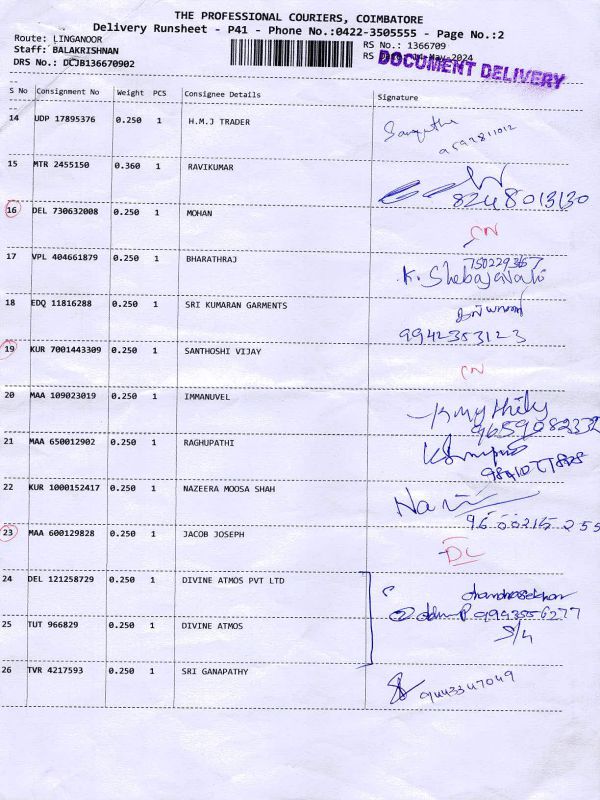 THE PROFESSIONAL COURIERS, COIMBATORE
Delivery Runsheet - P41 - Phone No.:0422-3505555 - Page No.:2
Route: LINGANOOR
Staff: BALAKRISHNAN
DRS No.: DCJB136670902
RS No.: 1366709
RS May-2024
DOCUMENT DELIVERY
S No Consignment No Weight PCS Consignee Details Signature
14 UDP 17895376 0.250 1 H.M.J TRADER
9592811012
15 MTR 2455150 0.360 1 RAVIKUMAR
8248013130
16 DEL 730632008 0.250 1 MOHAN
CN
17 VPL 404661879 0.250 1 BHARATHRAJ
K. 
18 EDQ 11816288 0.250 1 SRI KUMARAN GARMENTS
9942353123
19 KUR 7001443309 0.250 1 SANTHOSHI VIJAY
CN
20 MAA 109023019 0.250 1 IMMANUVEL
9659082332
21 MAA 650012902 0.250 1 RAGHUPATHI
22 KUR 1000152417 0.250 1 NAZEERA MOOSA SHAH
9600215255
23 MAA 600129828 0.250 1 JACOB JOSEPH
DL
24 DEL 121258729 0.250 1 DIVINE ATMOS PVT LTD
chandrasekhar
9993556277
S/4
25 TUT 966829 0.250 1 DIVINE ATMOS
26 TVR 4217593 0.250 1 SRI GANAPATHY
9443347049